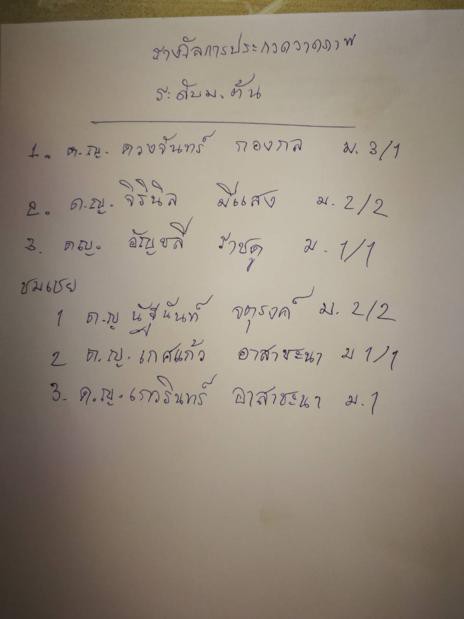 รางวัลการประกวดวาดภาพ
ระดับม.ต้น
1. ด.ญ. ดวงจันทร์ กองกูล ม. 3/1
2. ด.ญ. จิรินิล มีแสง ม. 2/2
3. ดญ. อัญชลี ราชดู ม. 1/1
ชมเชย
1 ด.ญ นัฐนันท์ จตุรงค์ ม. 2/2
2 ด.ญ. เกศแก้ว อาสาชะนา ม 1/1
3. ด.ญ. อาสาชะนา ม.1